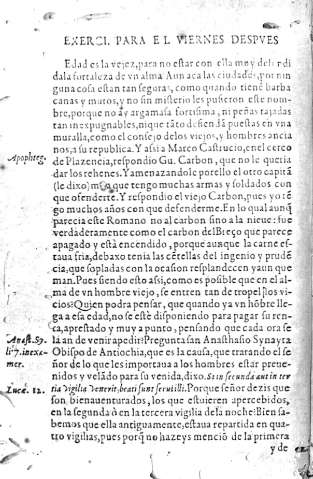 EXERCI. PARA EL VIERNES DESPVES
Edad es la vejez, para no estar con ella muy defendida la
fortaleza de vn alma. Aun aca las ciudades, por nin
guna cosa estan tan seguras, como quando tienẽ barba
canas y muros, y no sin misterio les pusieron este nom-
bre, porque no ay argamasa fortissima, ni peñas tajadas
tan inexpugnables, ni que tãto defiendã puestas en vna
muralla, como el consejo de los viejos, y hombres ancia
nos, a su republica. Y assi a Marco Castrucio, en el cerco
Apophteg.
de Plazencia, respondio Gu. Carbon, que no le queria
dar los rehenes. Y amenazandole por ello el otro capitã
(le dixo) mira que tengo muchas armas y soldados con
que ofenderte. Y respondio el viejo Carbon, pues yo tẽ
go muchos años con que defenderme. En lo qual aunq̃
parecia este Romano no al carbon sino a la nieue: fue
verdaderamente como el carbon del Breço que parece
apagado y està encendido, porque aunque la carne es-
taua fria, debaxo tenia las cẽtellas del ingenio y prudẽ
cia, que sopladas con la ocasion resplandecen y aun que
man. Pues siendo esto assi, como es possible que en el al
ma de vn hombre viejo, se entren tan de tropel los vi-
cios? Quien podra pensar, que quando ya vn hõbre lle-
ga a esa edad, no se estè disponiendo para pagar su ren-
ta, aprestado y muy a punto, pensando que cada ora se
Anast. Sy.
la an de venir a pedir? Pregunta san Anasthasio Synayta
li. 7. in exa-
Obispo de Antiochia, que es la causa, que tratando el se
mer.
ñor de lo que les importaua a los hombres estar preue-
nidos y velãdo para su venida, dixo. Et si in secunda aut in ter
Lucæ. 12.
tia vigilia venerit, beati sunt serui illi. Porque señor dezis que
son, bienauenturados, los que estuieren apercebidos,
en la segunda ò en la tercera vigilia de la noche: Bien sa-
bemos que ella antiguamente, estaua repartida en qua-
tro vigilias, pues porq̃ no hazeys menciõ de la primera
y de